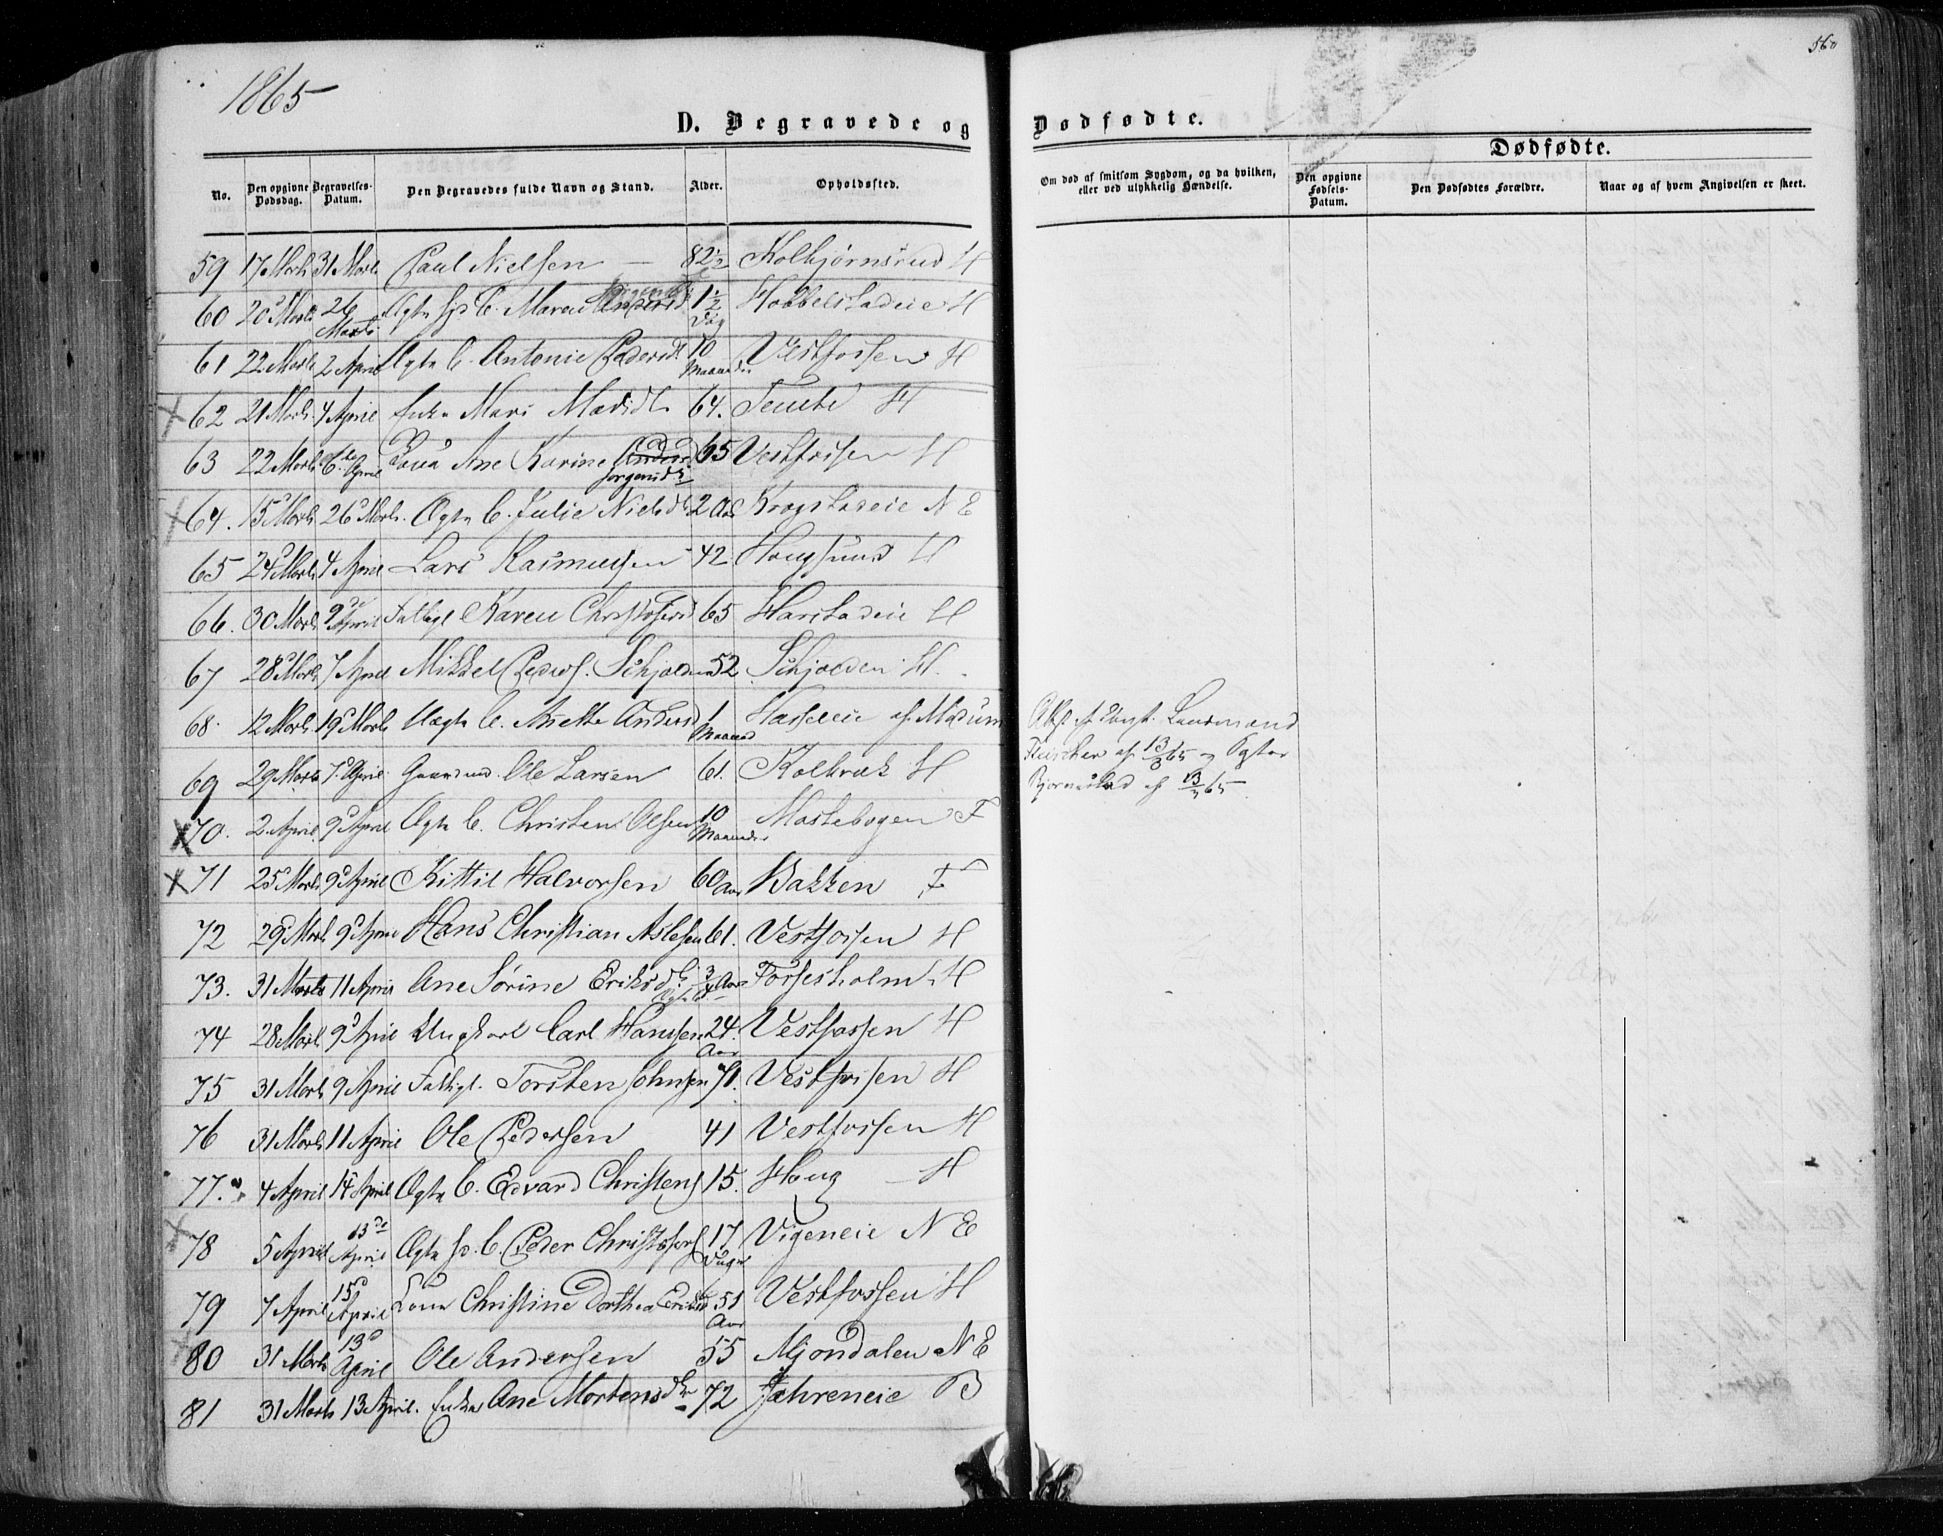 1865
560
D. Begravede og Dødfødte.
Dødfødte.
No. Den opgivne Dødsdag. Begravelses-Datum. Den Begravedes fulde Navn og Stand. Alder. Opholdssted. Om død af smitsom Sygdom, og da hvilken, eller ved ulykkelig Hændelse. Den opgivne Fødsels-Datum. Den Dødfødtes Forældre. Naar og af hvem Angivelsen er skeet.
59 17 Marts 31 Marts Paul Nielsen — 82½ Kolbjørnsrud H
60 20 Marts 26 Marts Ægte C. Maren 1½ Dag H
61 22 Marts 2 April Ægte C. Antonie Pedersdt 10 Maaneder Vestfossen H
62 21 Marts 4 April Enke Mari Madsdtr 64. Temte H
63 22 Marts 6te April Kona Ane Karine Anders Jørgensdtr 65 Vestfossen H
64. 15 Marts 26 Marts. Ægte C. Julie Nielsdtr 2 Aar Krogstadeie N E
65 24 Marts 4 April Lars Rasmussen 42 Hougsund H
66. 30 Marts 9de April Fattigl Karen Christofersd 65 Harstadeie H
67 28 Marts 7 April Mikkel Peders. Schjolden 52 Schjolden H.
68. 12 Marts 19 Marts Uægte C. Anette Andersd 1 Maaned af Modum
Lensmand
Fleischer af 13/3 65 og
Bjørnstad af 13/3 65
69 29 Marts 7 April Gaardmd. Ole Larsen 61. Kolbræk H
70. 2 April 9 April Ægte C. Christen Olsen 10 Maaneder Mastebogen F
71 25 Marts 9 April Kittil Halvorsen 60 Aar Bakken F
72 29 Marts 9 April Hans Christian Aslesen 61. Vestfossen H
73. 31 Marts 11 April Ane Sørine Eriksdtr Ægte C 3/4 Aar Fossesholm H
74 28 Marts 9 April Ungkarl Carl Hanssen 24. Aar Vestfossen H
75 31 Marts 9 April Fattigl. Torsten Johnsen 71. Vestfossen H
76 31 Marts 11 April Ole Pedersen 41 Vestfossen H
77. 4 April 14 April Ægte C. Edvard Christens 15. Houg — H
78 5 April 13de April Ægte C. Peder Christofers 17 Dage Vigeneie N E
79 7 April 15 April Kona Christine Dorthea Eriksd 51 Aar Vestfossen H
80 31 Marts 13 April Ole Andersen 55 Mjøndalen N E
81 31 Marts 13 April. Enke Ane Mortensdtr 72 Jahreneie B